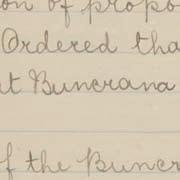 on of propo
Ordered tha
at Buncrana
f the Buncr